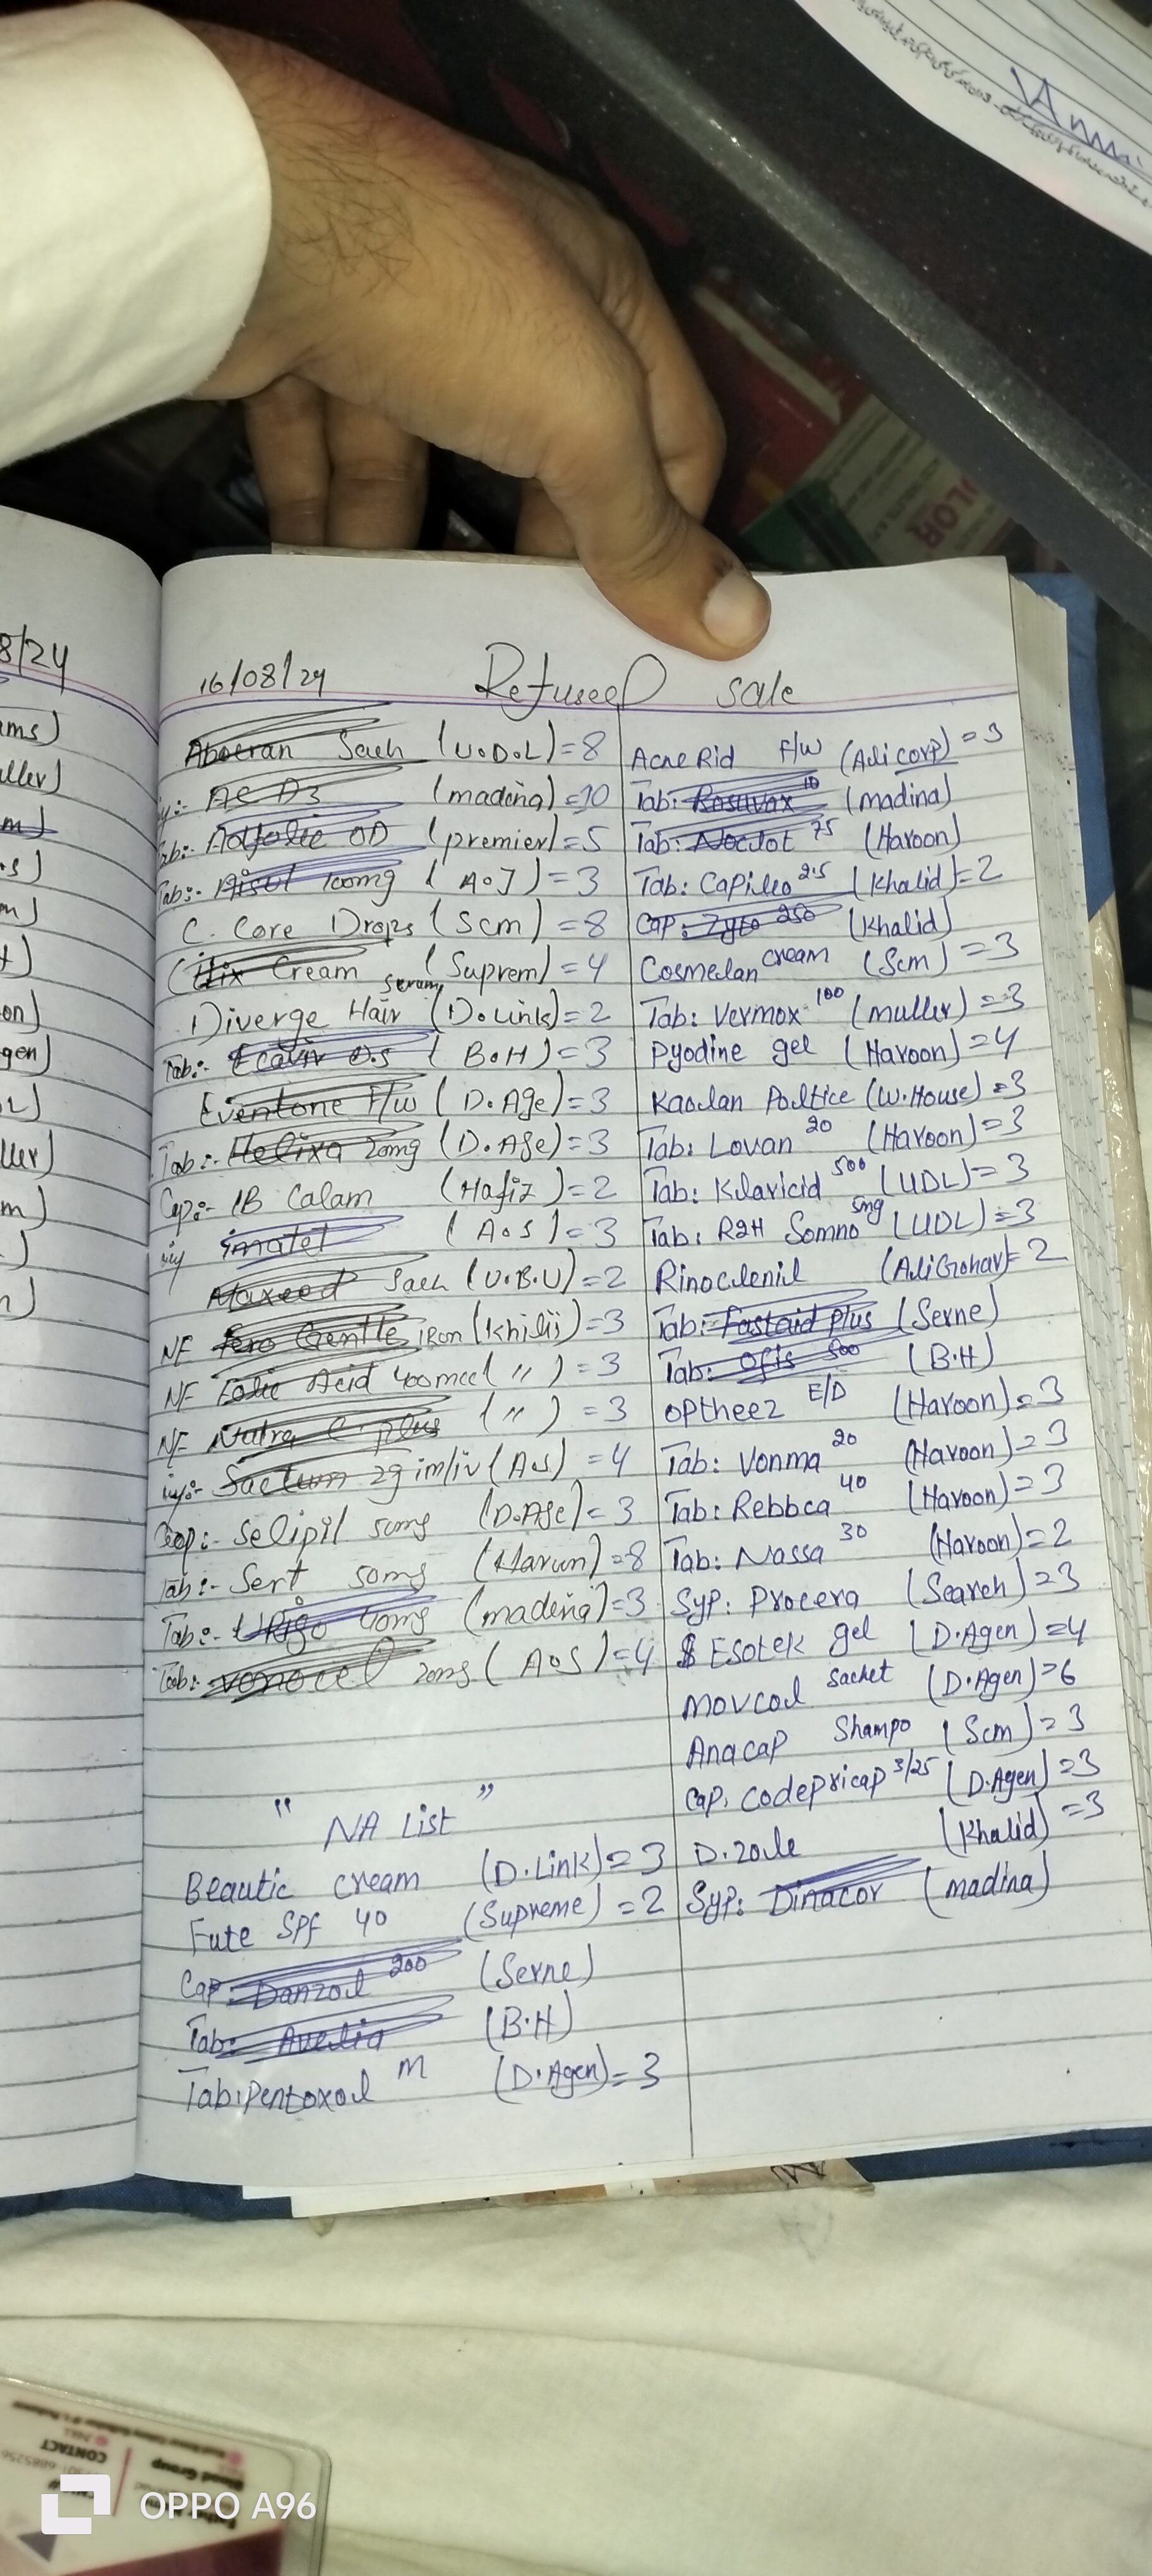 8/24
16/08/24 Refused sale
Sach (U.D.L) = 8
AC D3 (madina) = 10
Tab:- OD (premier) = 5
Tab:- 100mg (A.J) = 3
C. Core Drops (Scm) = 8
Cream (Suprem) = 4
Diverge Hair serum (D.Link) = 2
Tab:- Ecavir D.S (B.H) = 3
Eventone F/W (D.Age) = 3
Tab:- Helixa 20mg (D.Age) = 3
Cap:- IB Calam (Hafiz) = 2
inj imatet (A.S) = 3
Maxeed Sach (U.B.U) = 2
NF Fero Gentle iron (Khilji) = 3
NF Folic Acid 400mcel (〃) = 3
NF Nutra C plus (〃) = 3
inj:- Sactum 2g im/iv (A.S) = 4
Cap:- Selipil 50mg (D.Age) = 3
Tab:- Sert 50mg (Harun) = 8
Tab:- 40mg (madina) = 3
Tab:- vonocel 20mg (A.S) = 4
" NA List "
Beautic cream (D.Link) = 3
Fute SPF 40 (Supreme) = 2
Cap: Danzol 200 (Serne)
Tab: Avelia (B.H)
Tab: Pentoxol M (D.Agen) = 3
Acne Rid F/W (Adi corp) = 3
Tab: Rosuvax 10 (madina)
Tab: Noclot 75 (Haroon)
Tab: Capileo 2.5 (Khalid) = 2
Cap: Zyto 250 (Khalid)
Cosmelan cream (Scm) = 3
Tab: Vermox 100 (muller) = 3
Pyodine gel (Haroon) = 4
Kaolan Poltice (W.House) = 3
Tab: Lovan 20 (Haroon) = 3
Tab: Klaricid 500 (UDL) = 3
Tab: R2H Somno 5mg (UDL) = 3
Rinoclenil (Ali Gohar) = 2
Tab: Fastaid plus (Serne)
Tab: Ofis 500 (B.H)
optheez E/D (Haroon) = 3
Tab: Vonma 20 (Haroon) = 3
Tab: Rebbca 40 (Haroon) = 3
Tab: Nassa 30 (Haroon) = 2
Syp: Procera (Search) = 3
Esotek gel (D.Agen) = 4
Movcol sachet (D.Agen) = 6
Anacap Shampo (Scm) = 3
Cap: codepricap 3/25 (D.Agen) = 3
D.zole (Khalid) = 3
Syp: Dinacor (madina)
CONTACT
OPPO A96